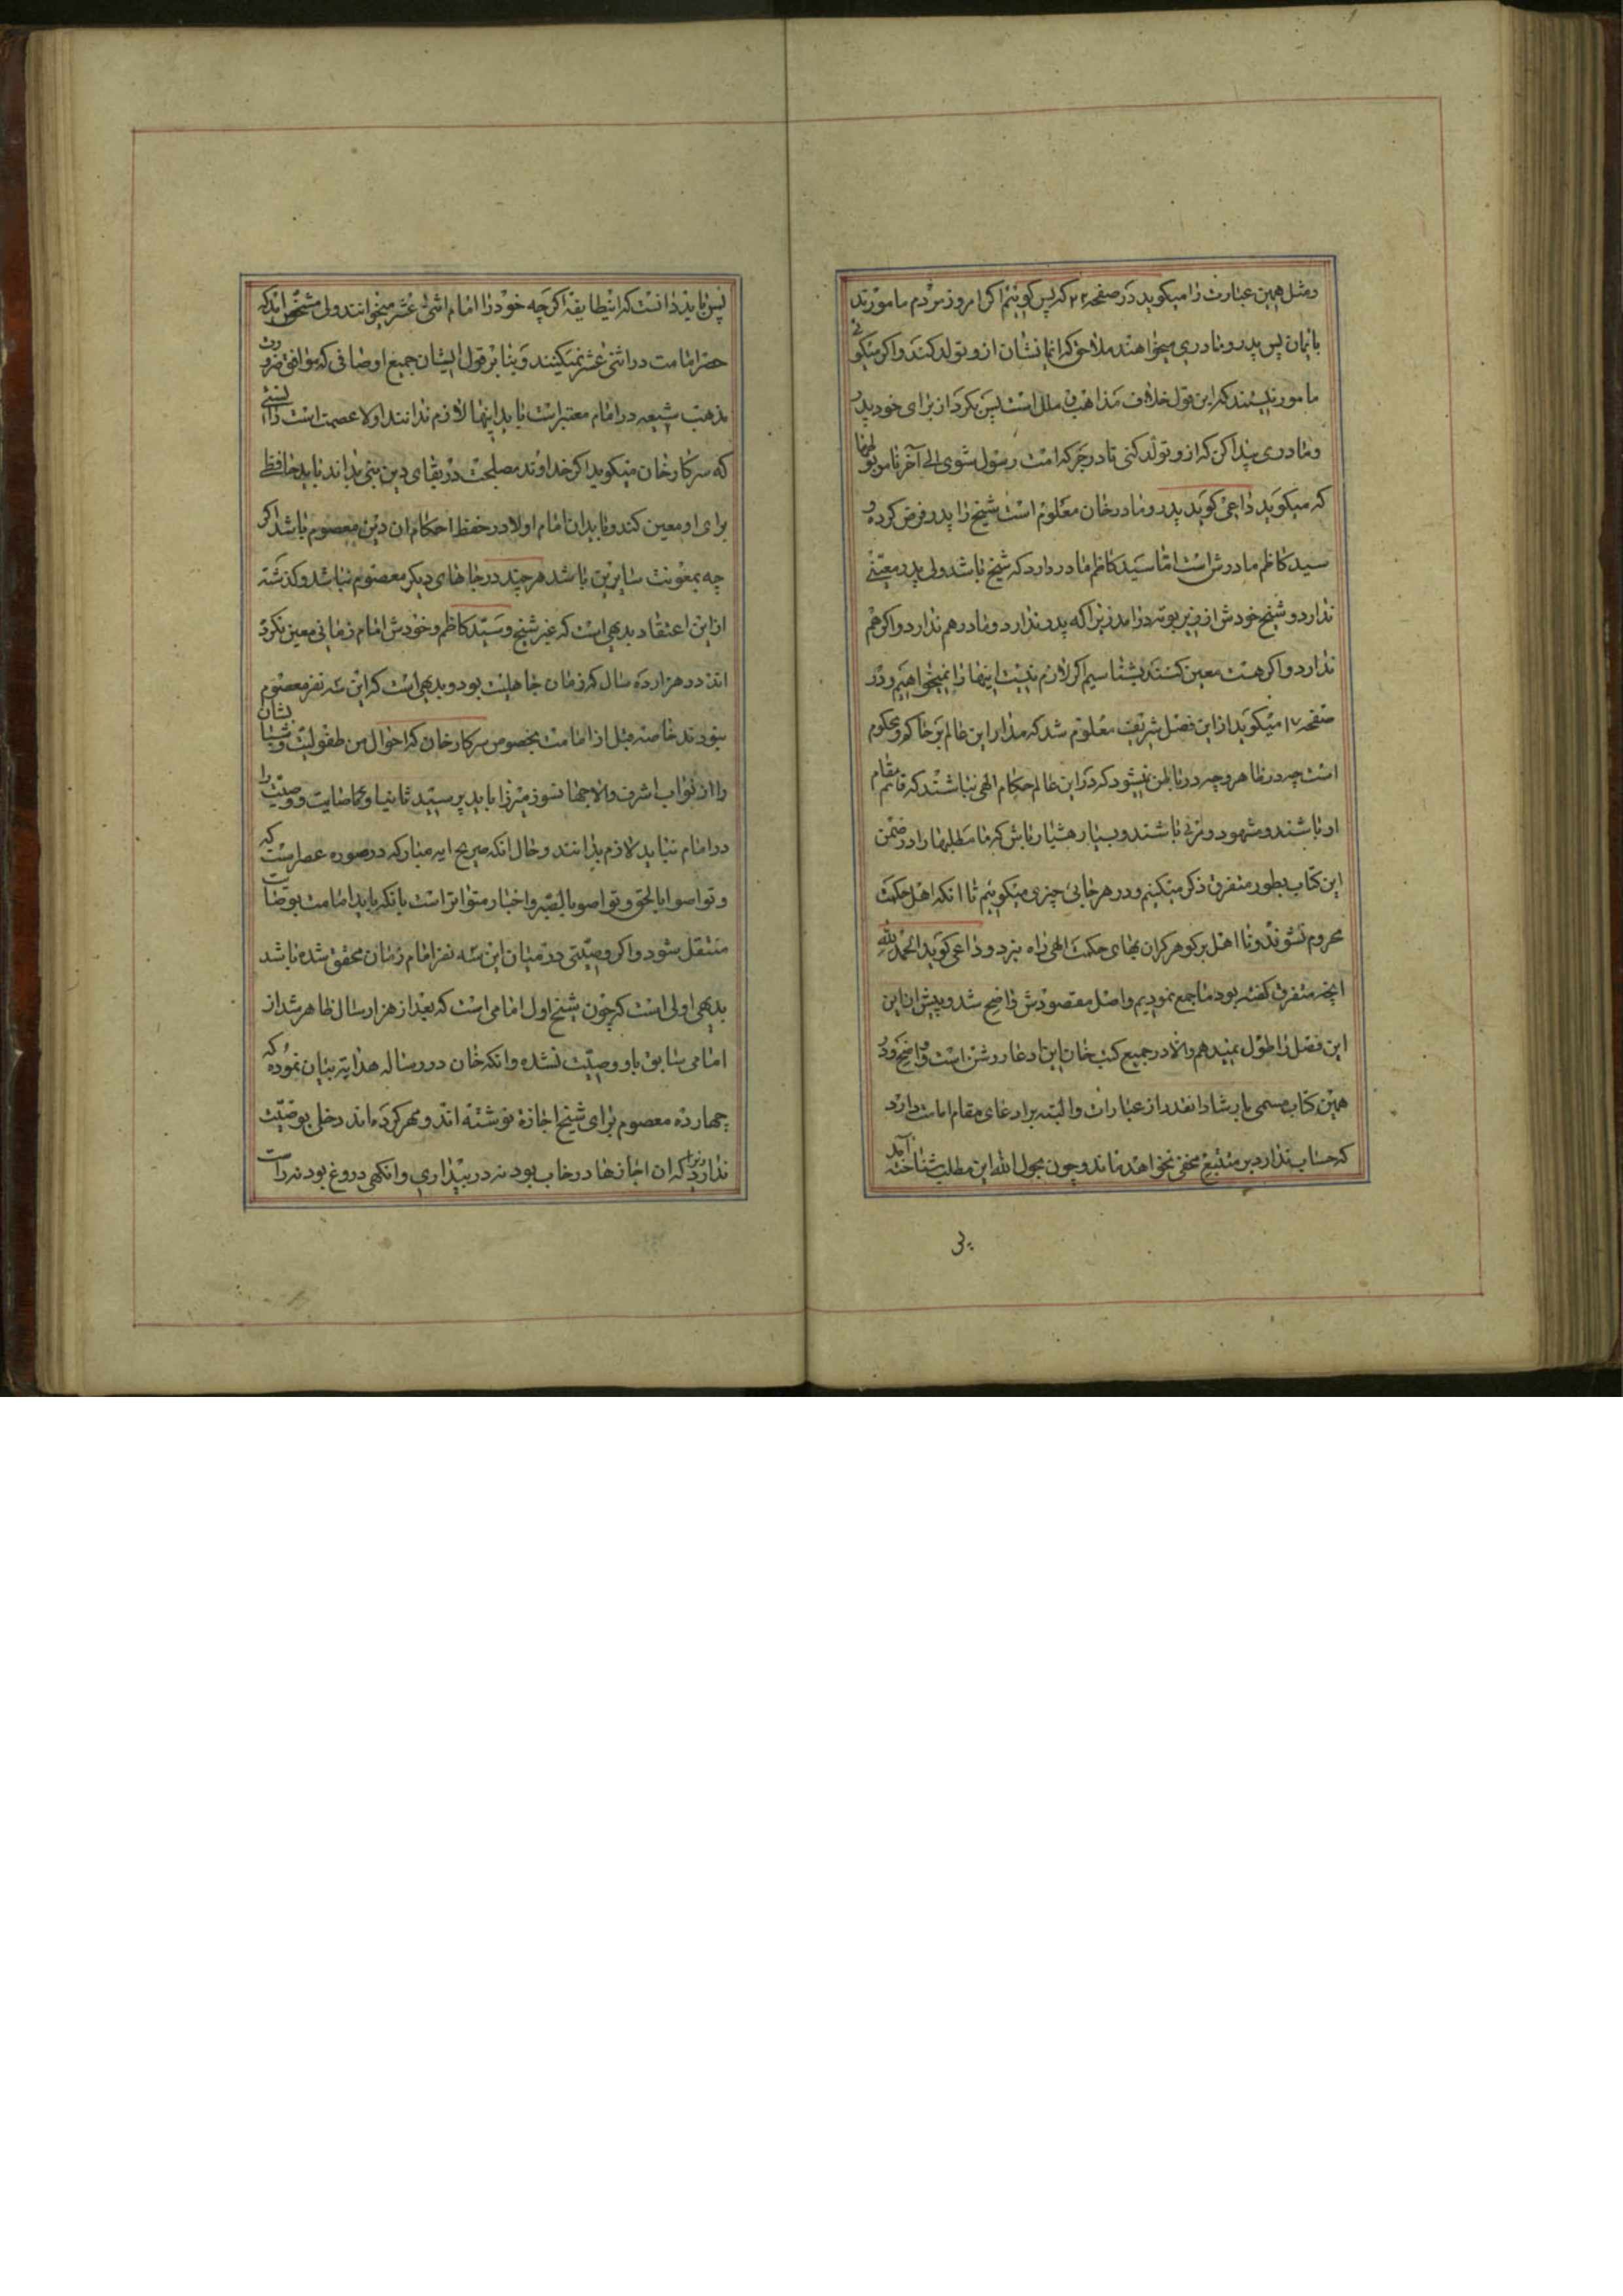 و مثل همین عبارت را میکوید در صفحه ۲۲ که پس کوئیم اکر امروز مردم مامورند
بایمان پس پدر و مادری میخواهند ملاحق که ایمانشان ازو تولد کند و اکر میکوئی
مامور نیستند که این قول خلاف مذاهب و ملل است پس بکرد از برای خود پدر
و مادری پیدا کن که ازو تولد کنی تا در جرکه امت رسول شوی الی آخر ناموبوئها
که میکوید داعی کوید پدر و مادر خان معلوم است شیخ را پدر فرض کرده و
سید کاظم مادرش است اما سید کاظم مادر دارد که شیخ باشد ولی پدر معینی
ندارد و شیخ خودش از زیر بوته درآمد زیرا که پدر ندارد و مادر هم ندارد و اکر هم
ندارد و اکر هست معین کنند بشناسیم اکر لازم نیست اینها را نمیخواهیم و در
صفحه ۱۷ میکوید از این فصل شریف معلوم شد که مدار این عالم بر حاکم و محکوم
است چه در ظاهر و چه در باطن نمیشود که در این عالم حکام الهی نباشند که قائم مقام
او باشند و مشهود و مرئی باشند و بسیار هشیار باش که ما مطلبها را در ضمن
این کتاب بطور متفرق ذکر میکنیم و در هر جائی چیزی میکوئیم تا انکه اهل حکمت
محروم نشوند و نا اهل بر کوهر کران بهای حکمت الهی راه نبرد و داعی کوید الحمد لله
آنچه متفرق کفته بود ما جمع نمودیم و اصل مقصودش واضح شد و بیش از این
این فصل را طول نمیدهم والا در جمیع کتب خان این ادعا روشن است و واضح و در
همین کتاب مسمی بارشاد انقدر از عبارات والبته بر ادعای مقام امامت دارد
که حساب ندارد بر متتبع مخفی نخواهد ماند و چون بحول الله این مطلب شناخته آمد
پس
پس باید دانست که اینطایفه اکرچه خود را امام اثنی عشر میخوانند ولی مشخص آمد که
حصر امامت در اثنی عشر نمیکنند و بنا بر قول ایشان جمیع اوصافی که موافق ضرورت
مذهب شیعه در امام معتبر است باید اینها لازم ندانند اولا عصمت است دانستی
که سرکار خان میکوید اکر خداوند مصلحت در بقای دین نبی بداند باید حافظ
برای او معین کند و باید ان امام اولا در حفظ احکام ان دین معصوم باشد اکر
چه بمعونت سایرین باشد هر چند در جاهای دیکر معصوم نباشد و کذشته
از این اعتقاد بدیهی است که غیر شیخ و سید کاظم و خودش امام زمانی معین نکرده
اند در هزار ده سال که زمان جاهلیت بود و بدیهی است که این سه نفر معصوم
نبودند خاصه قبل از امامت بخصوص سرکار خان که احوال من طفولیت و شبابشان
را از نواب اشرف والا جهانسوز میرزا باید پرسید ثانیا وصایت و وصیت را
در امام نباید لازم بدانند و حال انکه صریح ایه مبارکه در سوره عصر است که
و تواصوا بالحق و تواصوا بالصبر و اخبار متواتر است بانکه باید امامت بوصایت
منتقل شود و اکر وصیتی در میان این سه نفر امام زمان محقق شده باشد
بدیهی اولی است که چون شیخ اول امامی است که بعد از هزار سال ظاهر شد از
امامی سابق باو وصیت نشده و انکه خان در رساله هدایه بیان نموده که
چهارده معصوم برای شیخ اجازه نوشته اند و مهر کرده اند دخلی بوصیت
ندارد زیرا که ان اجازها در خاب بود نه در بیداری و انکهی دروغ بود نه راست